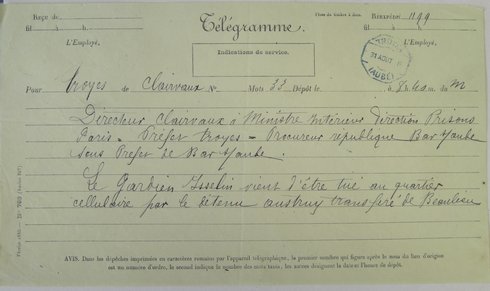 Reçu de
fil à h.
L'Employé,
Télégramme.
Indications de service.
Place du timbre à date.
Numéro 1199
fil à h.
L'Employé,
31 AOUT
(AUBE)
Pour Troyes de Clairvaux N° Mots 33 Dépôt le à 8h40 du m
Directeur Clairvaux à Ministre Intérieur direction Prisons
Paris - Prefet Troyes - Procureur république Bar s/aube
sous Prefet de Bar s/aube.
Le Gardien Isselin vient d'être tué au quartier
cellulaire par le détenu Austruy transféré de Beaulieu
AVIS. Dans les dépêches imprimées en caractères romains par l'appareil télégraphique, le premier nombre qui figure après le nom du lieu d'origine
est un numéro d'ordre, le second indique le nombre des mots taxés, les autres désignent la date et l'heure de dépôt.